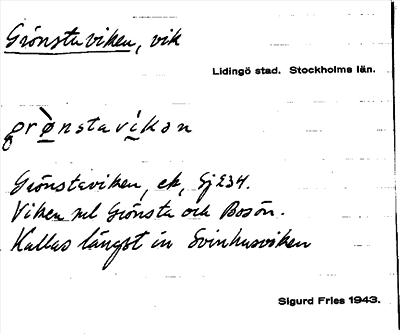 Grönstaviken, vik
Lidingö stad. Stockholms län.
grø̀nstavíkən
Grönstaviken, ek, Gj234.
Viken ml Grönsta och Bosön.
Kallas längst in Svinhusviken
Sigurd Fries 1943.